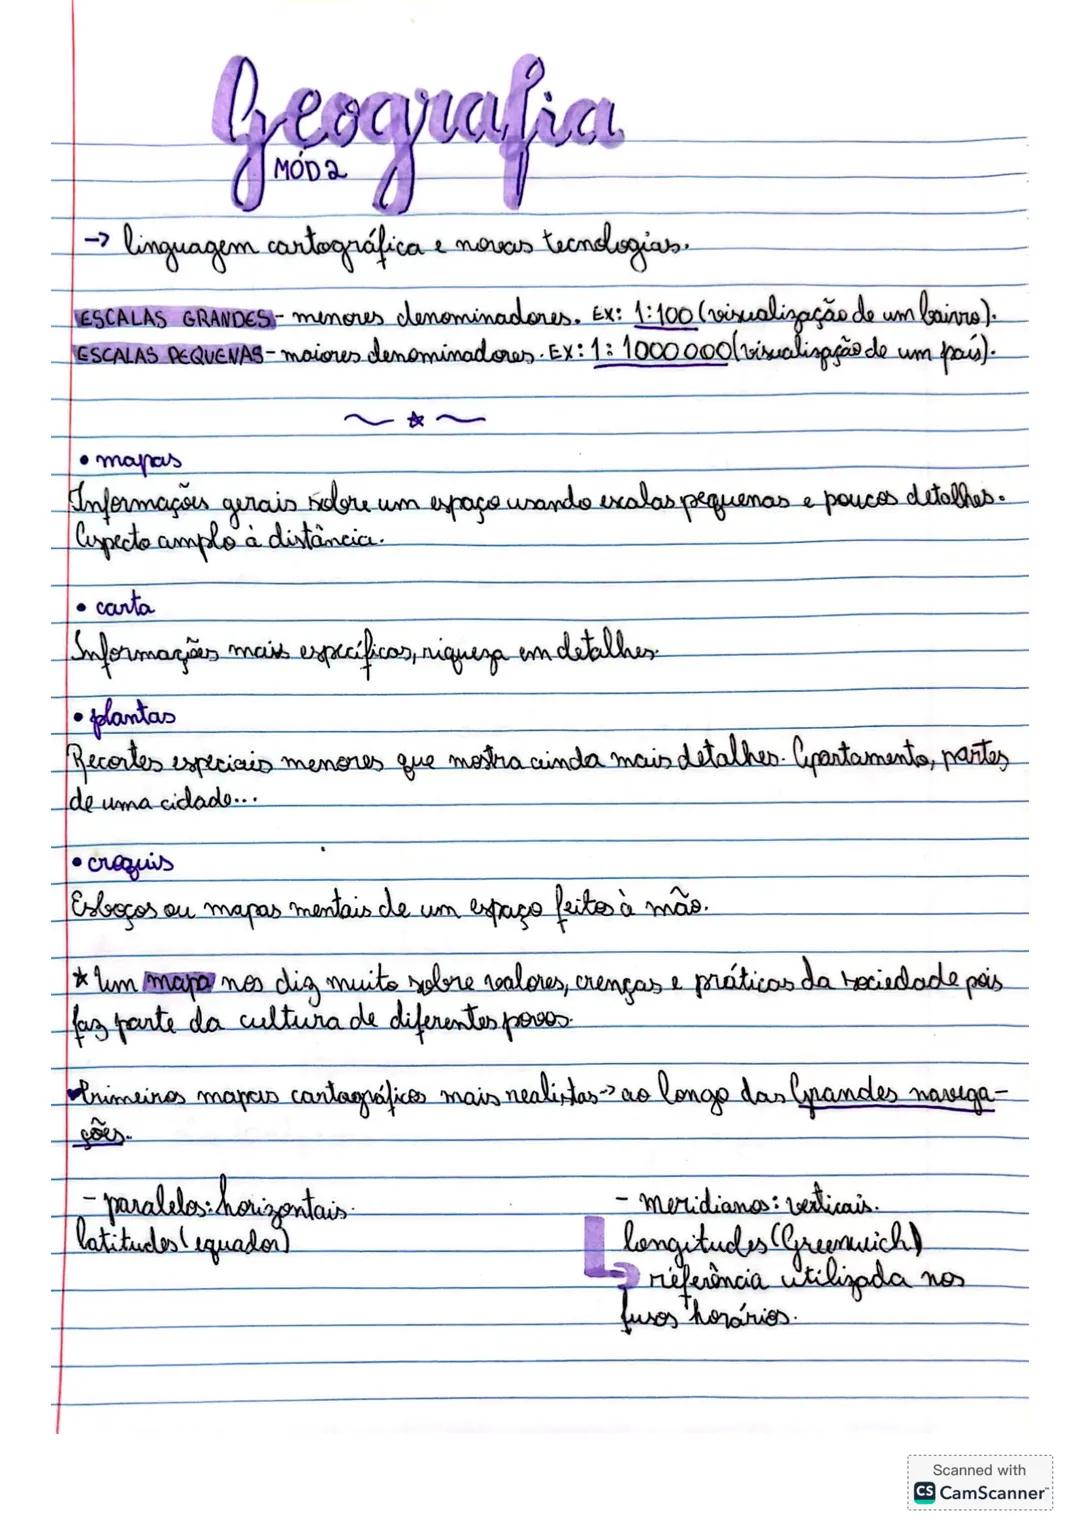 Geografia
MÓD 2
→ linguagem cartográfica e novas tecnologias.
ESCALAS GRANDES - menores denominadores. EX: 1:100 (visualização de um bairro).
ESCALAS PEQUENAS - maiores denominadores. EX: 1: 1000 000 (visualização de um país).
• mapas
Informações gerais sobre um espaço usando escalas pequenas e poucos detalhes.
Aspecto amplo à distância.
• carta
Informações mais específicas, riqueza em detalhes.
• plantas
Recortes especiais menores que mostra ainda mais detalhes. Apartamento, partes
de uma cidade...
• croquis
Esboços ou mapas mentais de um espaço feitos à mão.
★ Um mapa nos diz muito sobre valores, crenças e práticas da sociedade pois
faz parte da cultura de diferentes povos.
Primeiros mapas cartográficos mais realistas → ao longo das Grandes navega-
ções.
- paralelos: horizontais.
latitudes (equador)
- meridianos: verticais.
longitudes (Greenwich)
referência utilizada nos
fusos horários.
Scanned with
CS CamScanner